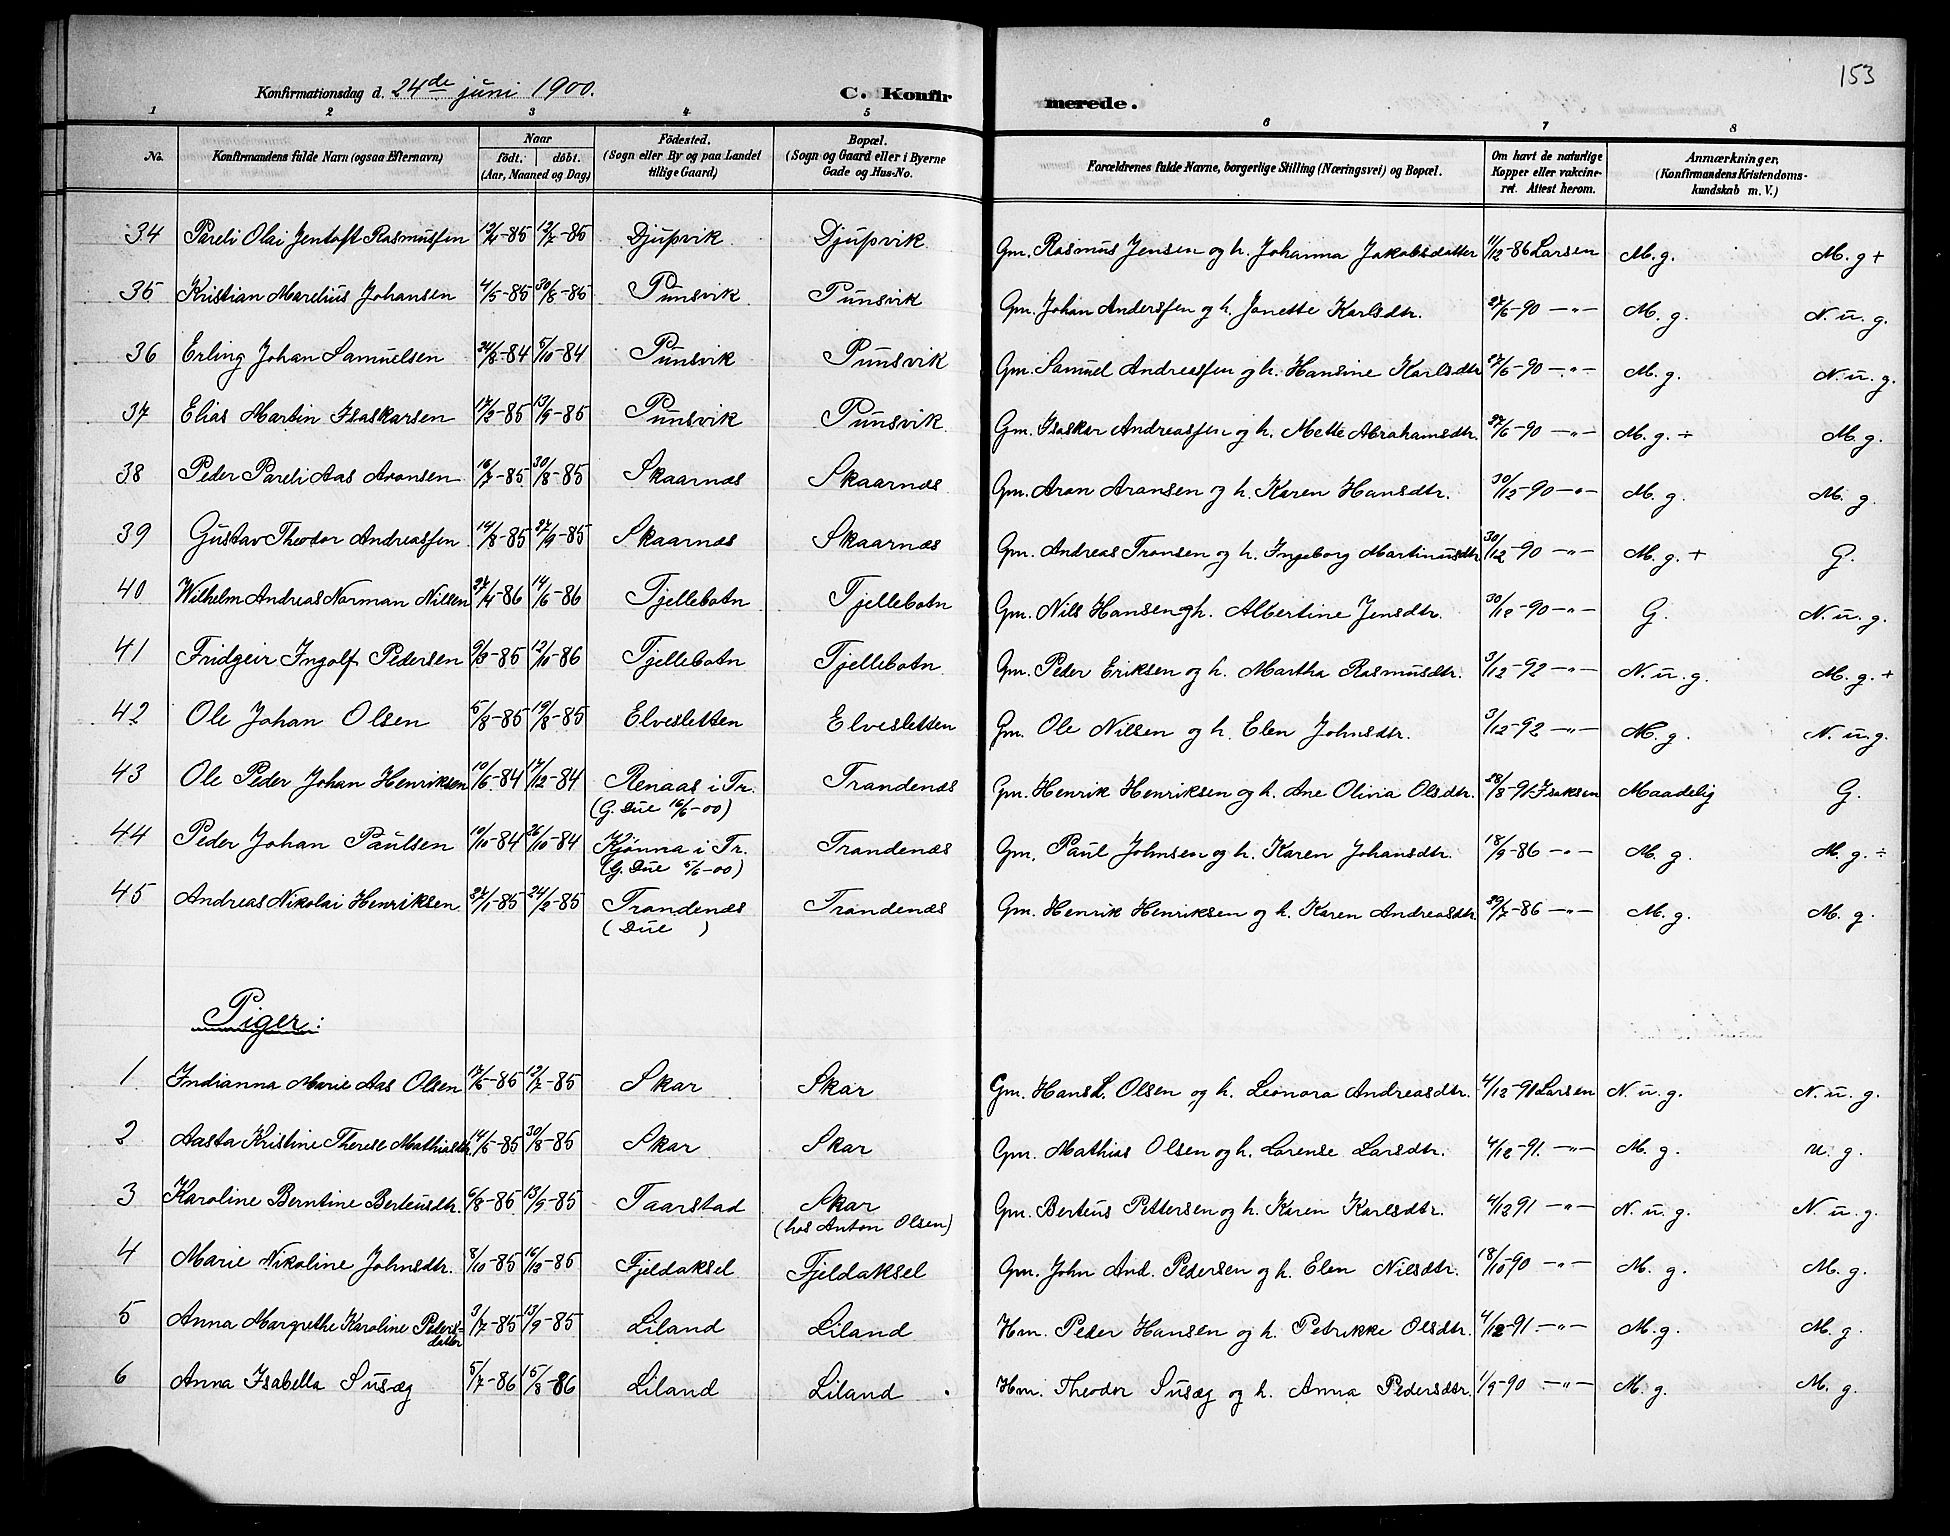 153
Konfirmationsdag d. 24de juni 1900. C. Konfirmerede.
1 2 3 4 5 6 7 8
No. Konfirmandens fulde Navn (ogsaa Efternavn) Naar födt. döbt. (Aar, Maaned og Dag) Födested. (Sogn eller By og paa Landet tillige Gaard) Bopæl. (Sogn og Gaard eller i Byerne Gade og Hus-No. Forældrenes fulde Navne, borgerlige Stilling (Næringsvei) og Bopæl. Om havt de naturlige Kopper eller vakcineret. Attest herom. Anmærkninger, (Konfirmandens Kristendomskundskab m. V.)
34 Pareli Olai Jentoft Rasmussen 12/7-85 Djupvik Djupvik Gm. Rasmus Jensen og h. Johanna Jakobsdatter 11/12-86 Larsen M. g. M. g +
35 Kristian Marelius Johansen 4/5-85 30/8-85 Punsvik Punsvik Gm. Johan Anderssen og h. Janette Karlsdtr. 27/6-90 —"— M. g. N. u. g.
36 Erling Johan Samuelsen 24/8-84 5/10-84 Punsvik Punsvik Gm. Samuel Andreassen og h. Hansine Karlsdtr 27/6-90 —"— M. g. N. u. g.
37 Elias Martin Isaskarsen 17/2-85 13/9-85 Punsvik Punsvik Gm. Isaskar Andreassen og h. Mette Abrahamsdtr. 27/6-90 —"— M. g. ÷ M. g.
38 Peder Pareli Aas Aronsen 16/7-85 30/8-85 Skaarnæs Skaarnæs Gm. Aron Aronsen og h. Karen Hansdtr. 30/12-90 —"— M. g. M. g.
39 Gustav Theodor Andreassen 19/8-85 27/9-85 Skaarnæs Skaarnæs Gm. Andreas Tronsen og h. Ingeborg Martinusdtr 30/12-90 —"— M. g. + G.
40 Wilhelm Andreas Norman Nilsen 27/4-86 14/6-86 Tjellebotn Tjellebotn Gm. Nils Hansen og h. Albertine Jensdtr. 30/12-90 —"— G. N. u. g.
41 Fridgeir Ingolf Pedersen 9/3-85 12/10-86 Tjellebotn Tjellebotn. Gm. Peder Eriksen og h. Martha Rasmusdtr. 3/12-92 —"— N. u. g. M. g. +
42 Ole Johan Olsen 5/8-85 19/8-85 Elvesletten Elvesletten Gm. Ole Nilsen og h. Elen Johnsdtr. 3/12-92 —"— M. g. N. u. g.
43 Ole Peder Johan Henriksen 10/6-84 17/12-84 Renaas i Tr. Trandenæs Gm. Henrik Henriksen og h. Ane Olivia Olsdtr. 28/8-91 Isaksen Maadelig G.
(G. Due 16/6-00)
44 Peder Johan Paulsen 10/10-84 26/10-84 Kjønna i Tr. Trandenæs Gm. Paul Johnsen og h. Karen Johansdtr. 18/9-86 —"— M. g. M. g. ÷
(G. Due 5/6-00)
45 Andreas Nikolai Henriksen 27/1-85 24/2-85 Trandenæs Trandenæs Gm. Henrik Henriksen og h. Karen Andreasdtr. 29/7-86 —"— M. g. M. g.
(Due )
Piger:
1 Indianna Marie Aas Olsen 17/5-85 12/7-85 Skar Skar Gm. Hans L. Olsen og h. Leonora Andreasdtr. 4/12-91 Larsen N. u. g. N. u. g.
2 Aasta Kristine Therese Mathiasdtr. 14/5-85 30/8-85 Skar Skar Gm. Mathias Olsen og h. Lorense Larsdtr. 4/12-91. —"— M. g. u. g.
3 Karoline Berntine Berteusdtr. 6/8-85 13/9-85 Taarstad Skar Gm. Berteus Pettersen og h. Karen Karlsdtr. 4/12 91 —"— N. u. g. N. u. g.
(hos Anton Olsen)
4 Marie Nikoline Johnsdtr. 8/10-85 16/12-85 Fjeldaksel Fjeldaksel Gm. John And. Pedersen og h. Elen Nilsdtr. 18/10 90 —"— M. g. M. g.
5 Anna Margrethe Karoline Peders- 3/7-85 13/9-85 Liland Liland Hm. Peder Hansen og h. Petrikke Olsdtr. 4/12-91. —"— M. g. M. g.
datter
6 Anna Isabella Susæg 5/7-86 15/8-86 Liland Liland Hm. Theodor Susæg og h. Anna Pedersdtr. 1/9-90 —"— M. g. M. g.